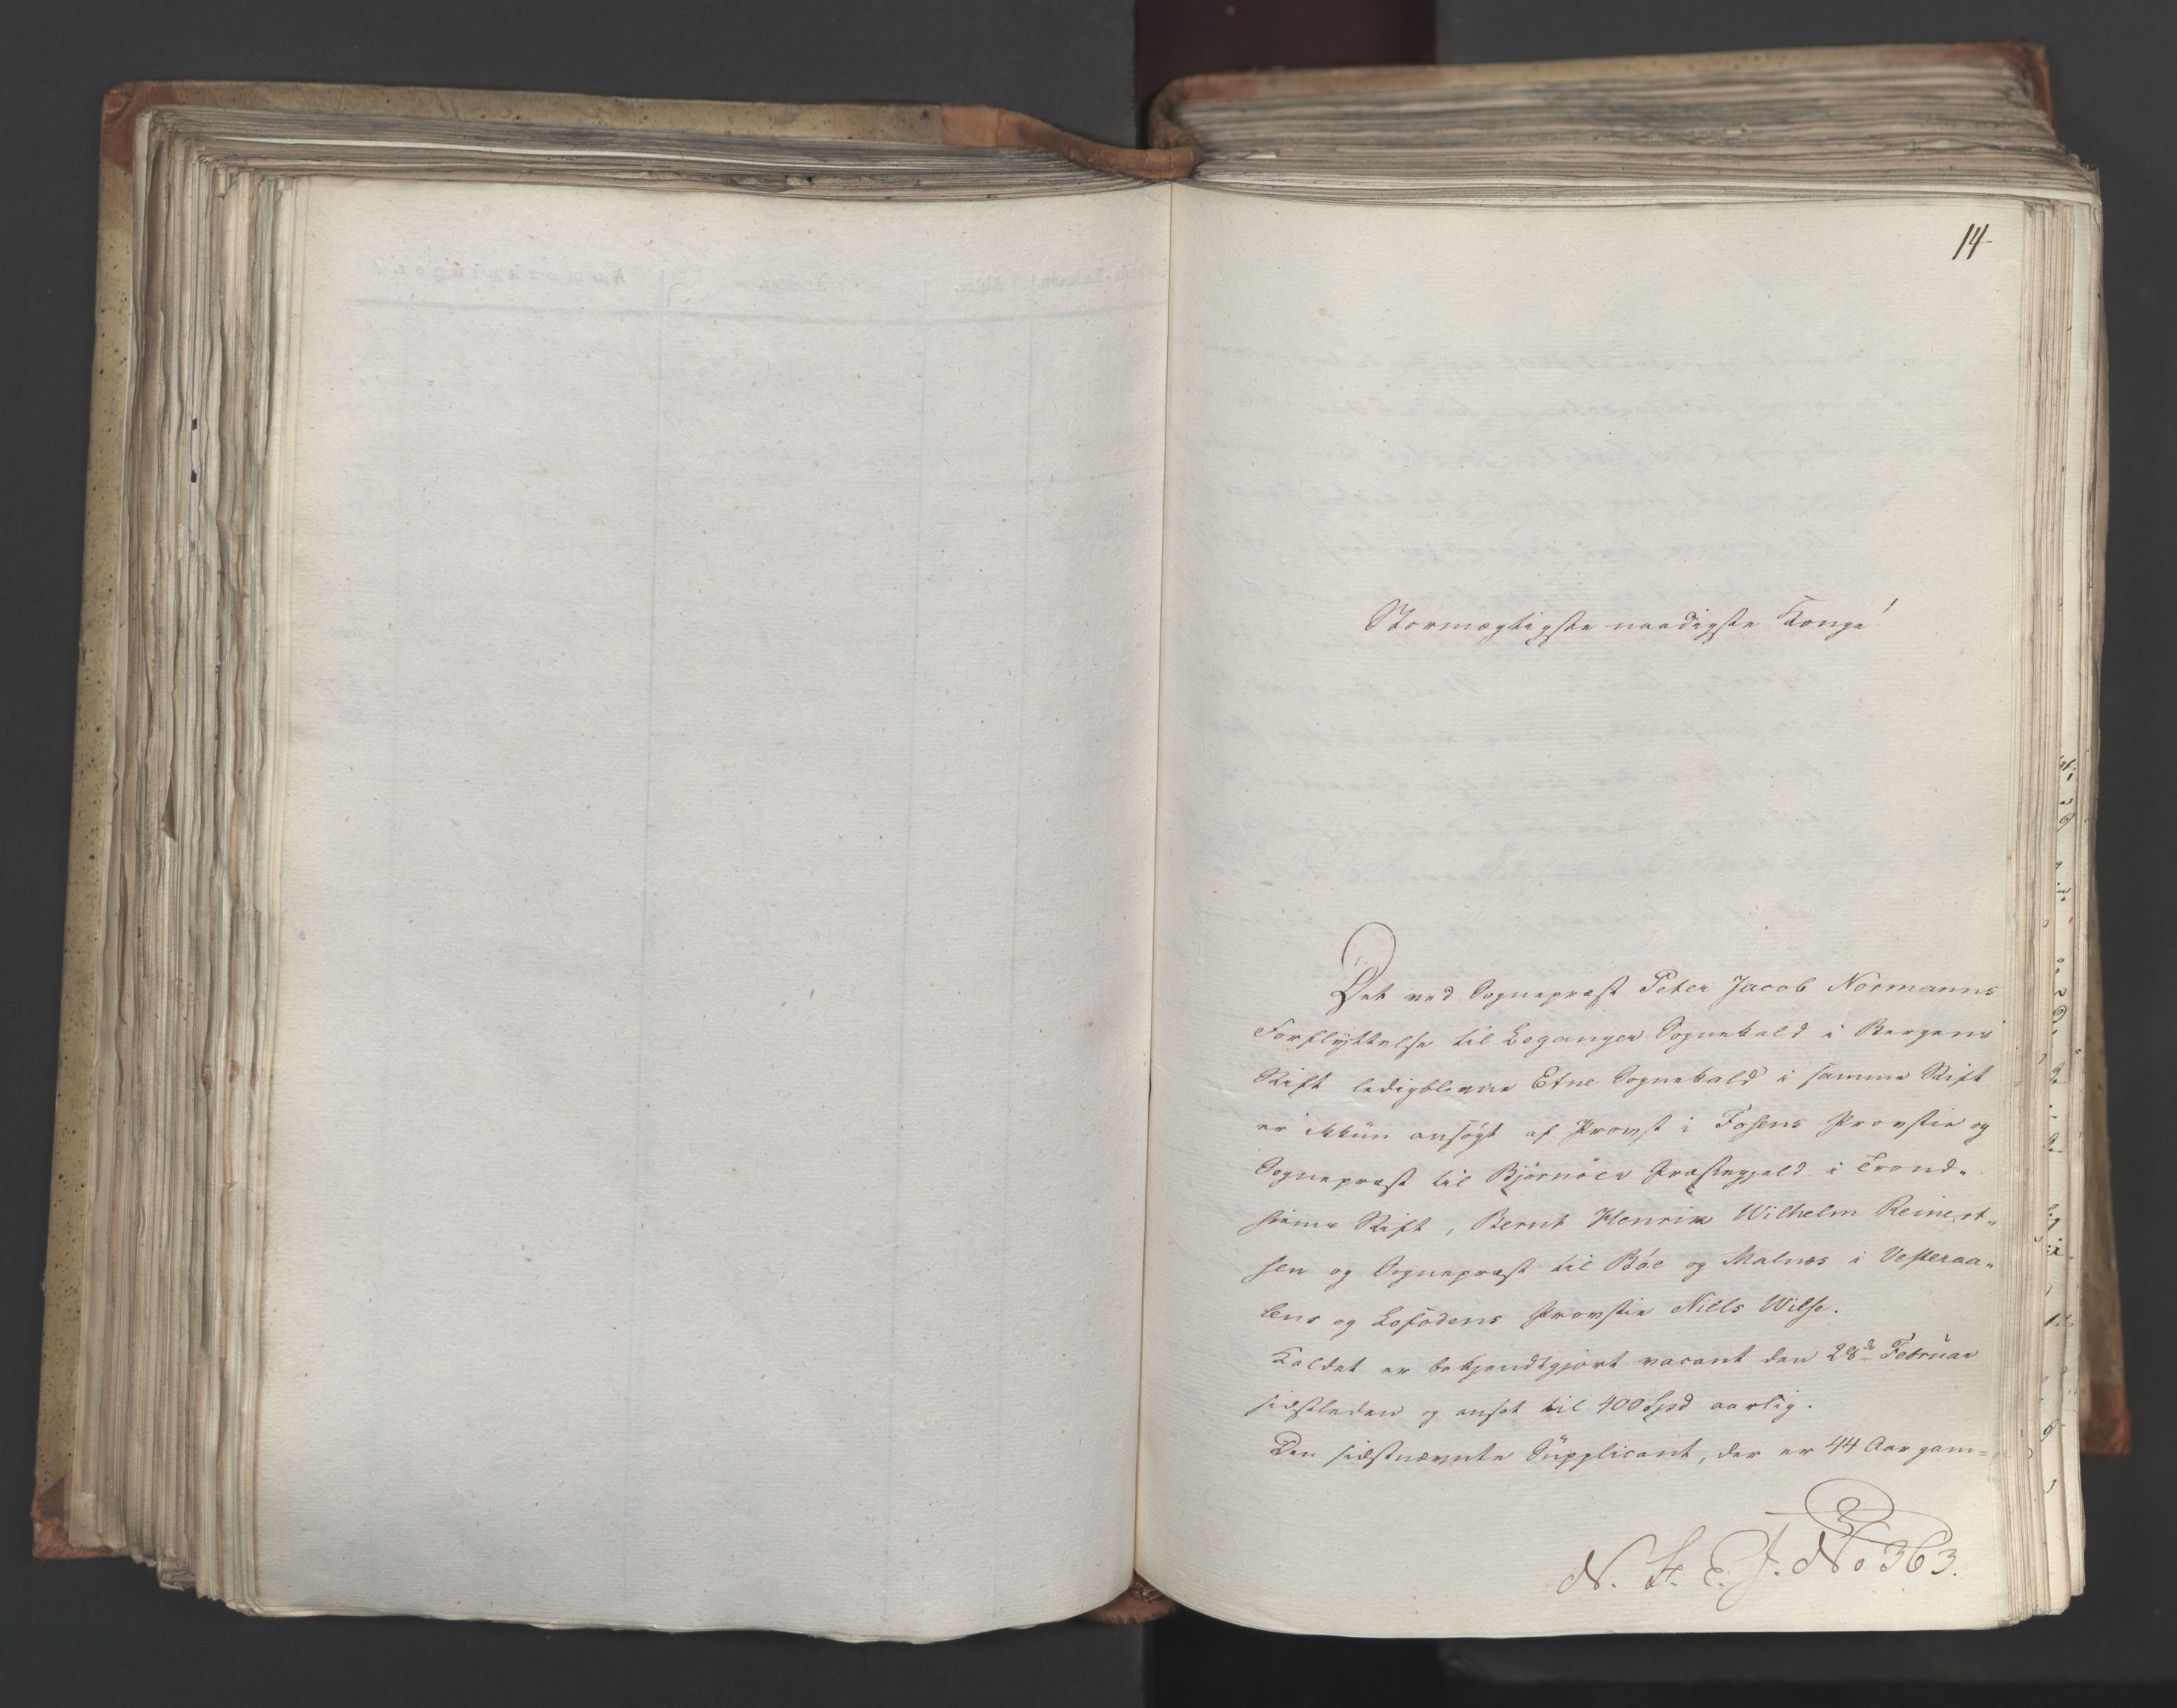 14
Stormægtigste naadigste Konge!
Det ved Sognepræst Peter Jacob Normanns
Forflyttelse til Leganger Sognekald i Bergens
Stift ledigblevne Etne Sognekald i samme Stift
er ikkun ansøgt af Provst i Fosens Provstie og
Sognepræst til Bjørnöer Præstegjeld i Trond-
hiems Stift, Bernt Henrik Wilhelm Reinert-
sen og Sognepræst til Böe og Malnæs i Vesteraa-
lens og Lofodens Provstie Niels Wilse.
Kaldet er bekjendtgjort vacant den 28de Februar
sidstleden og ansat til 400 Spd aarlig.
Den sidstnævnte Supplicant, der er 44 Aar gam-
N. No. 363.